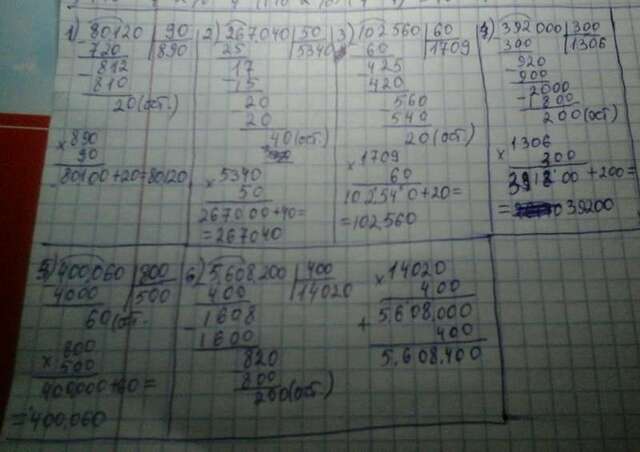 1) 80120 | 90
720 | 890
- 812
810
20 (ост.)
× 890
90
80100 + 20 = 80120
2) 267040 | 50
25 | 5340
17
- 15
20
- 20
40 (ост)
× 5340
50
267000 + 40 =
= 267040
3) 102560 | 60
60 | 1709
- 425
420
- 560
540
20 (ост.)
× 1709
60
102540 + 20 =
= 102,560
4) 392000 | 300
300 | 1306
- 920
900
- 2000
1800
200 (ост)
× 1306
300
+ 200 =
= 39200
5) 400,060 | 800
4000 | 500
60 (ост.
× 800
500
400,000 + 60 =
= 400,060
6) 5,608,200 | 400
400 | 14020
- 1608
1600
820
800
200 (ост)
× 14020
400
5,608,000
+ 400
5,608,400